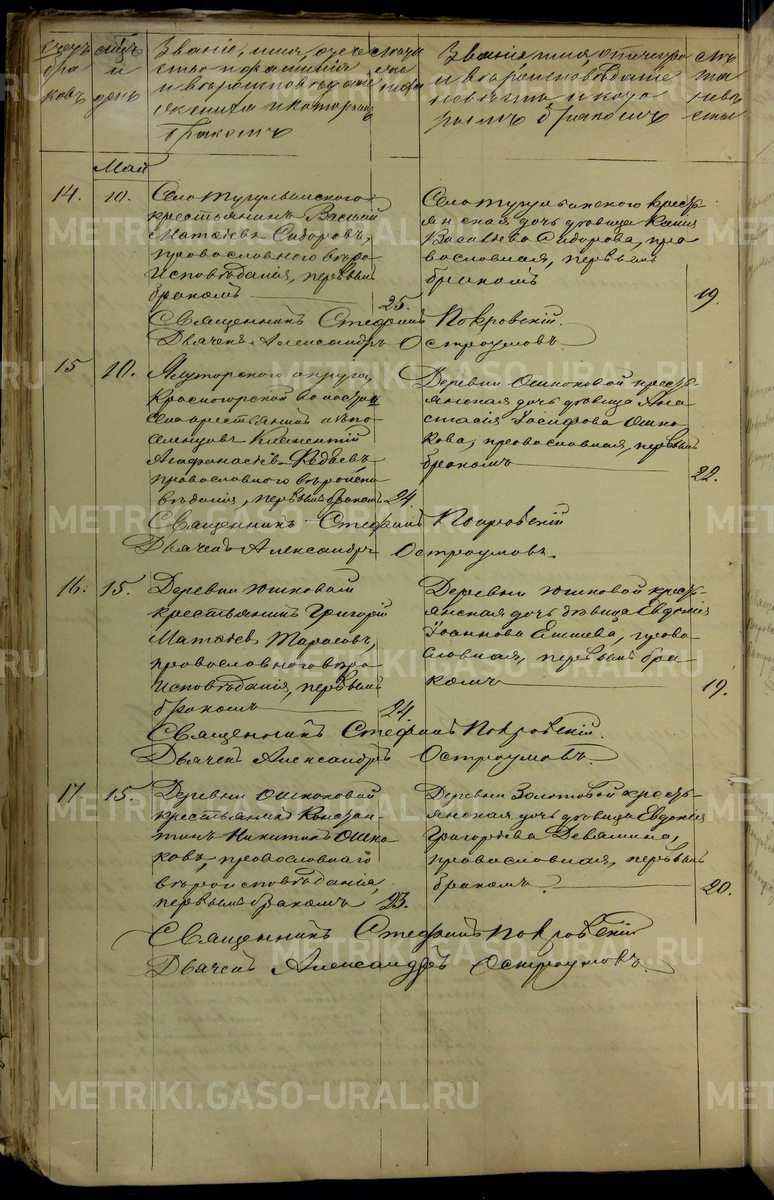 Счетъ браковъ
мѣсяцъ и день
Званіе, имя, отче-
ство и фамилія
и вѣроисповѣданіе
жениха и которымъ
бракомъ
лѣта
жениха
Званіе имя отчество
и вѣроисповѣданіе
невѣсты и кото-
рымъ бракомъ
лѣта
невѣ
сты
Май
14. 10.
Села Тугулымскаго
крестьянинъ Василій
Матѳѣевъ Сидоровъ,
православнаго вѣро-
исповѣданія, первымъ
бракомъ
25.
Села Тугулымскаго кресть-
янская дочь дѣвица
Сидорова, пра-
вославная, первымъ
бракомъ
19.
Священникъ Стефанъ Покровскій.
Дьячекъ Александръ Остроумовъ.
15 10.
Ялуторскаго округа,
Красногорской волости
села крестьянинъ изъ по-
селенцовъ Климентій
православнаго вѣроиспо-
вѣданія, первымъ бракомъ 24
Деревни Ошкуковой кресть-
янская дочь дѣвица Ана-
стасія Іосифова Ошку-
кова, православная, первымъ
бракомъ
22.
Священникъ Стефанъ Покровскій
Дьячекъ Александръ Остроумовъ.
16. 15.
Деревни Юшковой
крестьянинъ Григорій
Матѳѣевъ Тарасовъ,
православнаго вѣро-
исповѣданія, первымъ
бракомъ
24.
Деревни Юшковой кресть-
янская дочь дѣвица Евдокія
Іоаннова, право-
славная, первымъ бра-
комъ
19.
Священникъ Стефанъ Покровскій.
Дьячекъ Александръ Остроумовъ.
17. 15.
Деревни Ошкуковой
крестьянинъ Констан-
тинъ Никитинъ Ошку-
ковъ, православнаго
вѣроисповѣданія,
первымъ бракомъ 23.
Деревни Золотовой кресть-
янская дочь дѣвица Евдокія
Григорьева Девяшина,
православная, первымъ
бракомъ.
20.
Священникъ Стефанъ Покровскій
Дьячекъ Александръ Остроумовъ.
METRIKI.GASO-URAL.RU